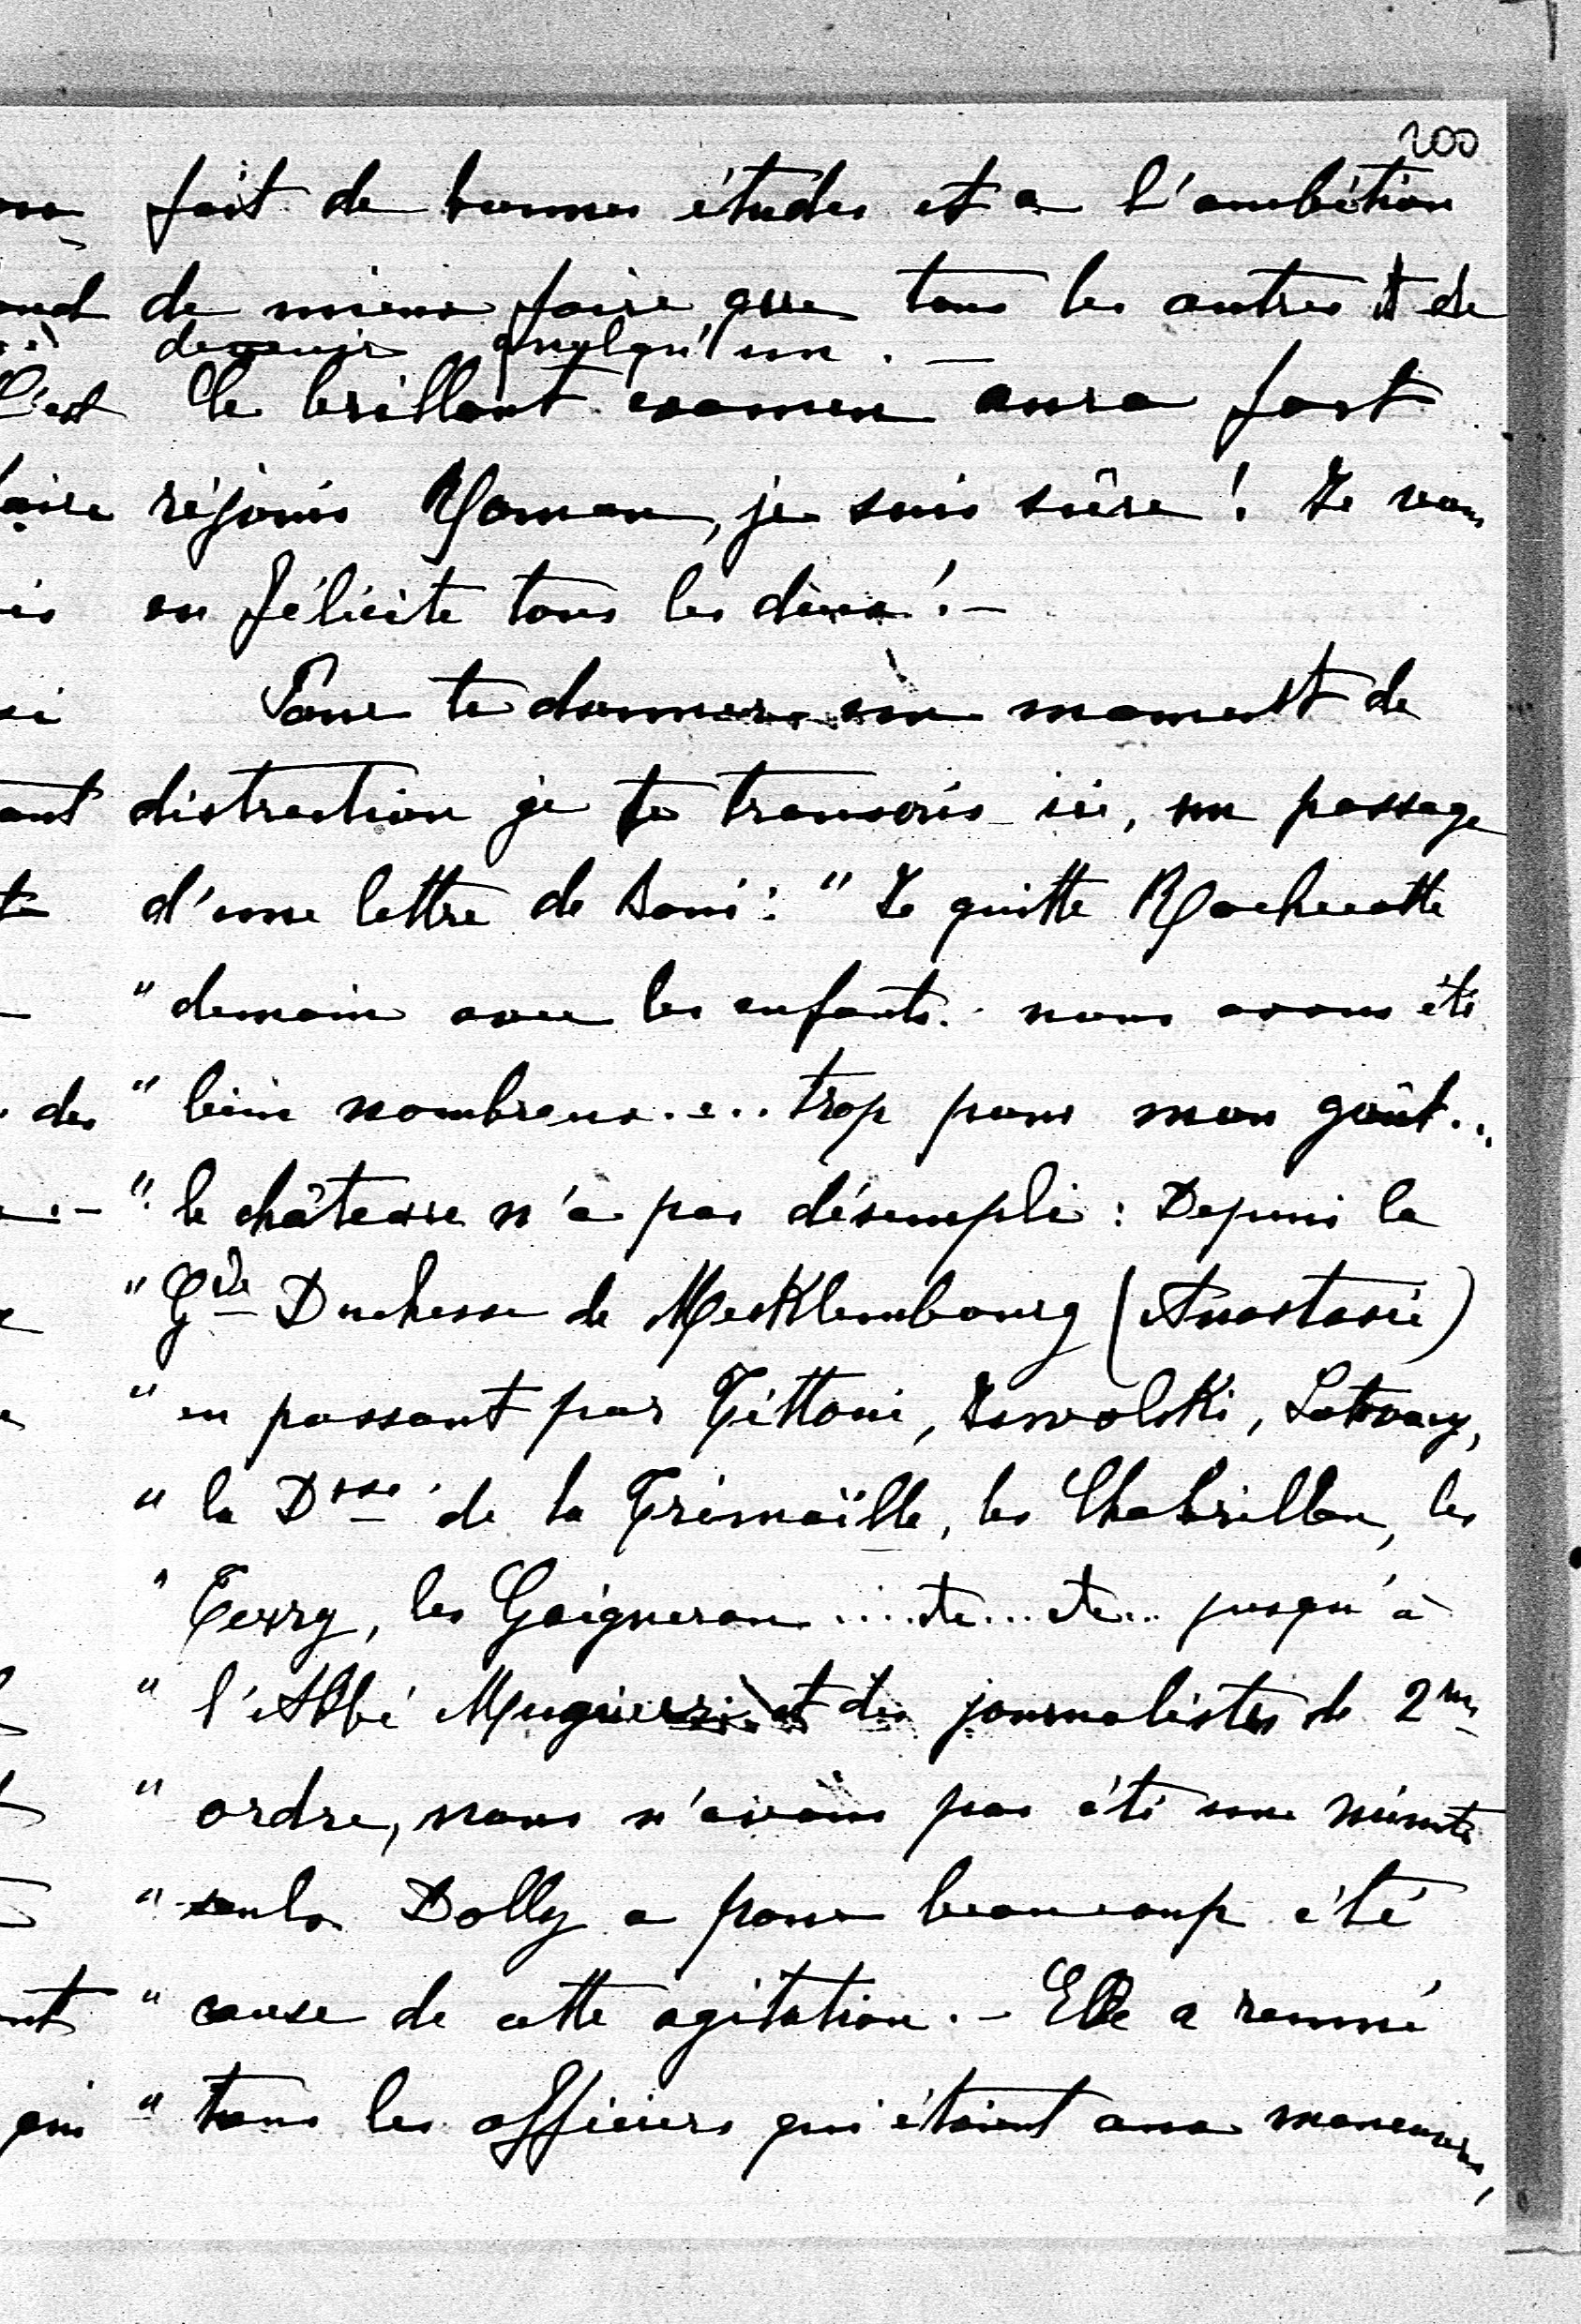 200
fait de bonnes études et a l'ambition
de mieux faire que tous les autres et de
devenir quelqu'un. —
Ce brillant examen aura fort
réjouis Maman, je suis sûre! Je vous
en félicite tous les deux! —
Pour te donner un moment de
distraction je te transcris ici, un passage
d'une lettre de Boni: " Je quitte Rochecotte
" demain avec les enfants. nous avons été
" bien nombreux.... trop pour mon goût...
" le château n'a pas désempli: Depuis la
" Gde Duchesse de Mecklembourg (Anastasie)
" en passant par Tittoni, Iswolski,
" la Dsse de la Trémoïlle, les Chabrillan, les
" les Gaigneron .... etc... etc... jusqu'à
" l'Abbé Mugnier et des journalistes de 2me
" ordre, nous n'avons pas été une minute
" seuls Dolly a pour beaucoup été
" cause de cette agitation. — Elle a ramené
" tous les officiers qui étaient aux manœuvres,